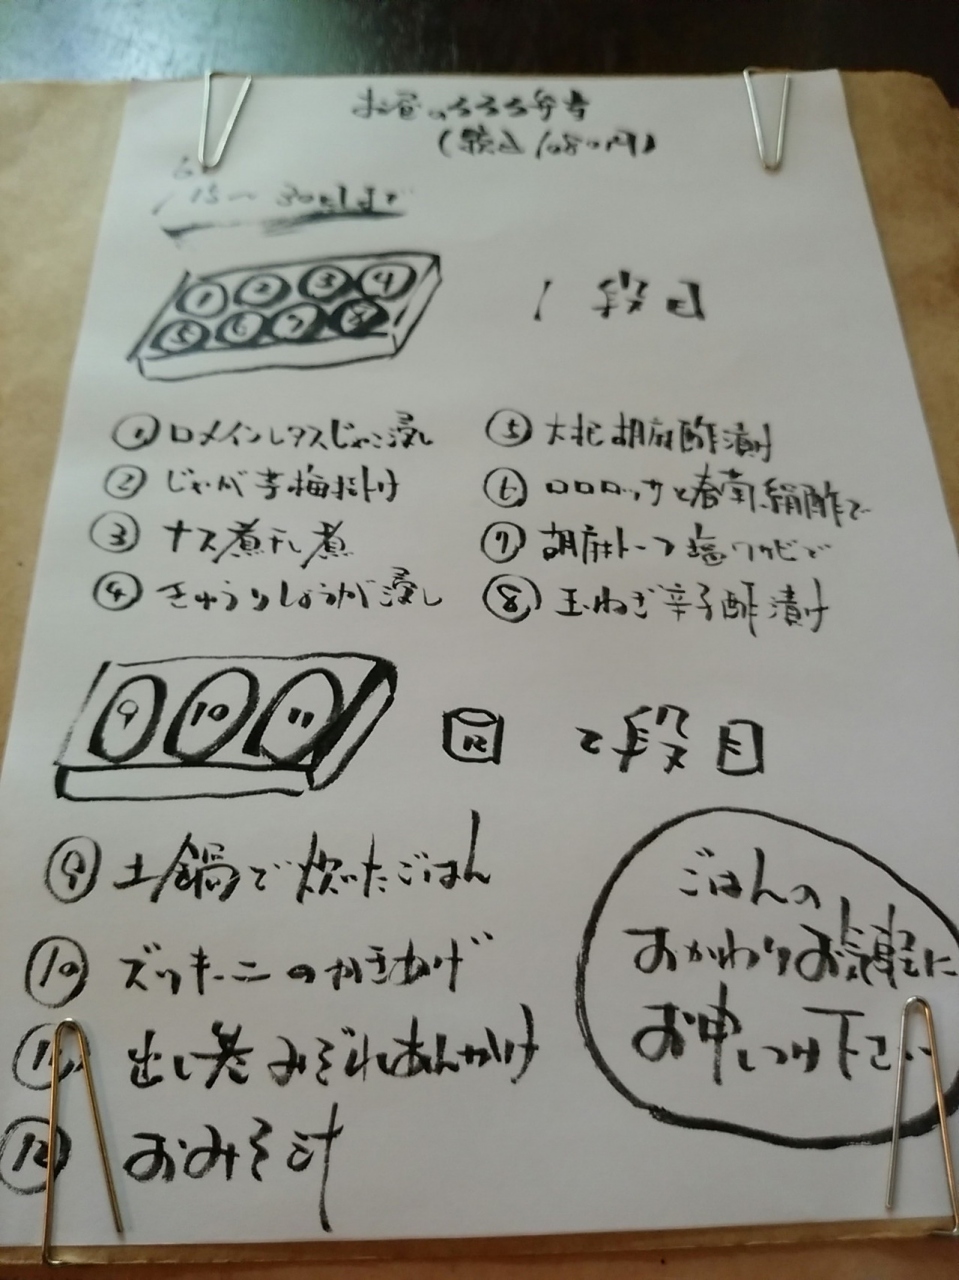 お昼のろろろ弁当
(税込1080円)
6/15〜30日まで
① ② ③ ④
⑤ ⑥ ⑦ ⑧
1段目
①ロメインレタスじゃこ浸し
②じゃが芋梅掛け
③ナス煮干し煮
④きゅうりしょうが浸し
⑤大根胡麻酢漬け
⑥ロロロッサと春菊絹酢で
⑦胡麻トーフ塩ワサビで
⑧玉ねぎ辛子酢漬け
9 10 11
12
2段目
⑨土鍋で炊いたごはん
⑩ズッキーニのかきあげ
⑪出し巻みぞれあんかけ
⑫おみそ汁
ごはんの
おかわりお気軽に
お申しつけ下さい